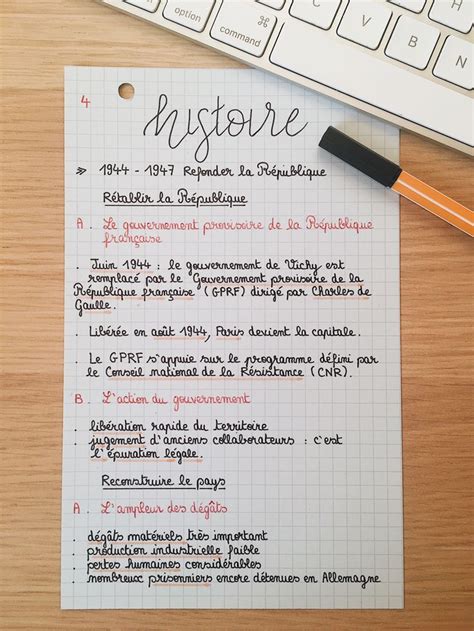 Z
X
C
V
B
N
M
control
option
command
4
histoire
» 1944 - 1947 Refonder la République
Rétablir la République
A. Le gouvernement provisoire de la République
française
. Juin 1944 : le gouvernement de Vichy est
remplacé par le Gouvernement provisoire de la
République française (GPRF) dirigé par Charles de
Gaulle.
. Libérée en août 1944, Paris devient la capitale.
. Le GPRF s'appuie sur le programme défini par
le Conseil national de la Résistance (CNR).
B. L'action du gouvernement
. libération rapide du territoire
. jugement d'anciens collaborateurs : c'est
l'épuration légale.
Reconstruire le pays
A. L'ampleur des dégâts
. dégâts matériels très important
. production industrielle faible
. pertes humaines considérables
. nombreux prisonniers encore détenues en Allemagne